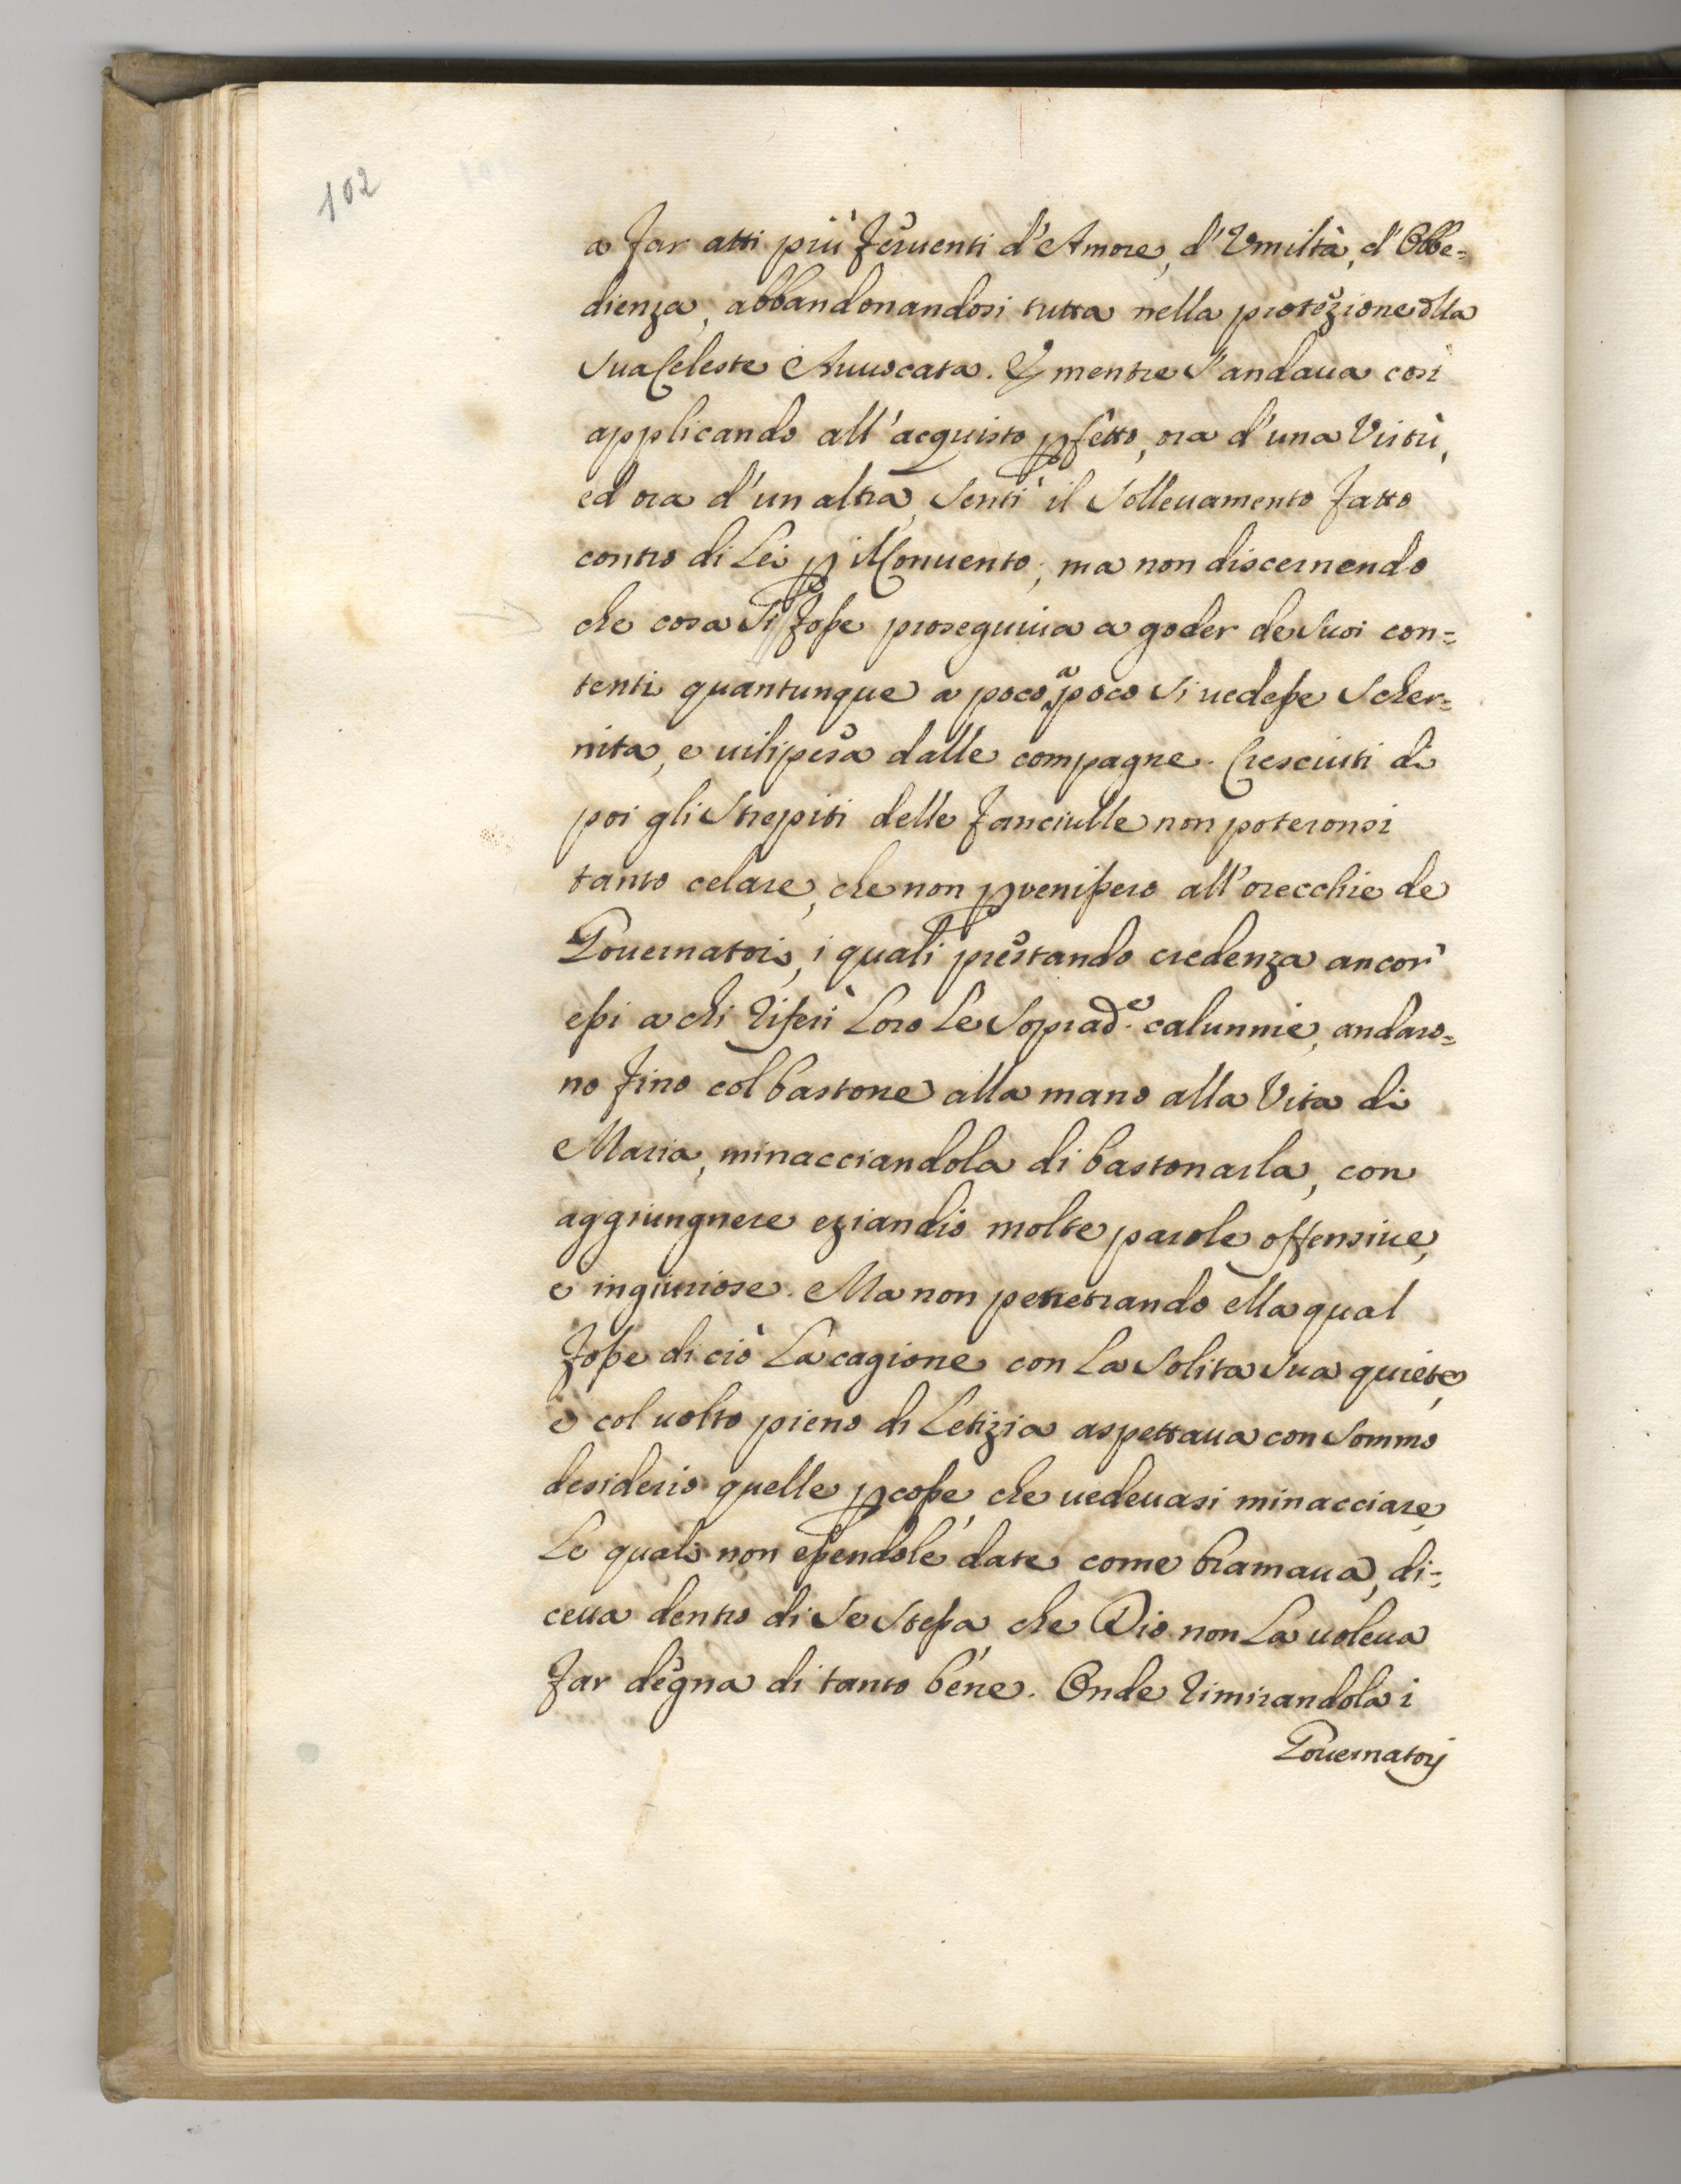 102
a far atti più feruenti d'Amore, d'Vmiltà, d'Obbe=
dienza, abbandonandosi tutta nella protezione dlla
sua Celeste Auuocata. E mentre s'andaua così
applicando all'acquisto pfetto, ora d'una Virtù,
ed ora d'un altra, sentì il solleuamento fatto
contro di Lei p il Conuento; ma non discernendo
che cosa si fosse proseguiua a goder de suoi con=
tenti quantunque a poco a poco si uedesse scher=
nita, e uilipesa dalle compagne. Cresciuti di
poi gli strepiti delle fanciulle non poteronsi
tanto celare, che non puenissero all'orecchie de
Gouernatori, i quali prestando credenza ancor'
essi a chi riferì Loro Le soprad.e calunnie, andaro=
no fino col bastone alla mano alla Vita di
Maria, minacciandola di bastonarla, con
aggiungnere eziandio molte parole offensiue,
e ingiuriose. Ma non penetrando ella qual
fosse di ciò La cagione con La solita sua quiete,
e col uolto pieno di Letizia aspettaua con sommo
desiderio quelle pcosse, che uedeuasi minacciare,
Le quali non essendole date come bramaua, di=
ceua dentro di se stessa che Dio non La uoleua
far degna di tanto bene. Onde rimirandola i
Gouernatorj